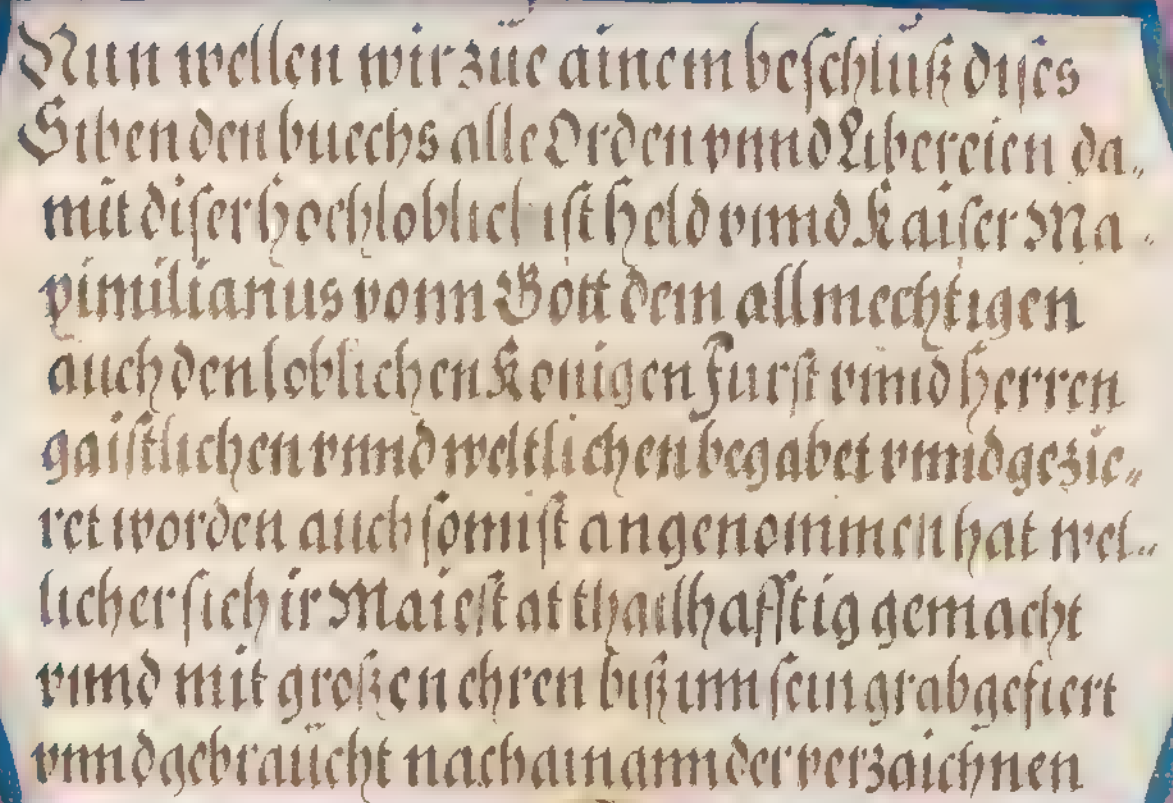 Nun wellen wir züe ainem beschlüß dises
Sibenden buechs alle Orden vnnd Libereien da„
mit diser hochloblich ist held vnnd Kaiser Ma„
ximilianus vonn Gott dem allmechtigen
auch den loblichen Konigen furst vnnd herren
gaistlichen vnnd weltlichen begabet vnnd gezie„
ret worden auch sonnst angenommen hat wel„
licher sich ir Maiestat thailhafftig gemacht
vnnd mit großen ehren biß inn sein grab gefiert
vnnd gebraücht nach ainannder verzaichnen